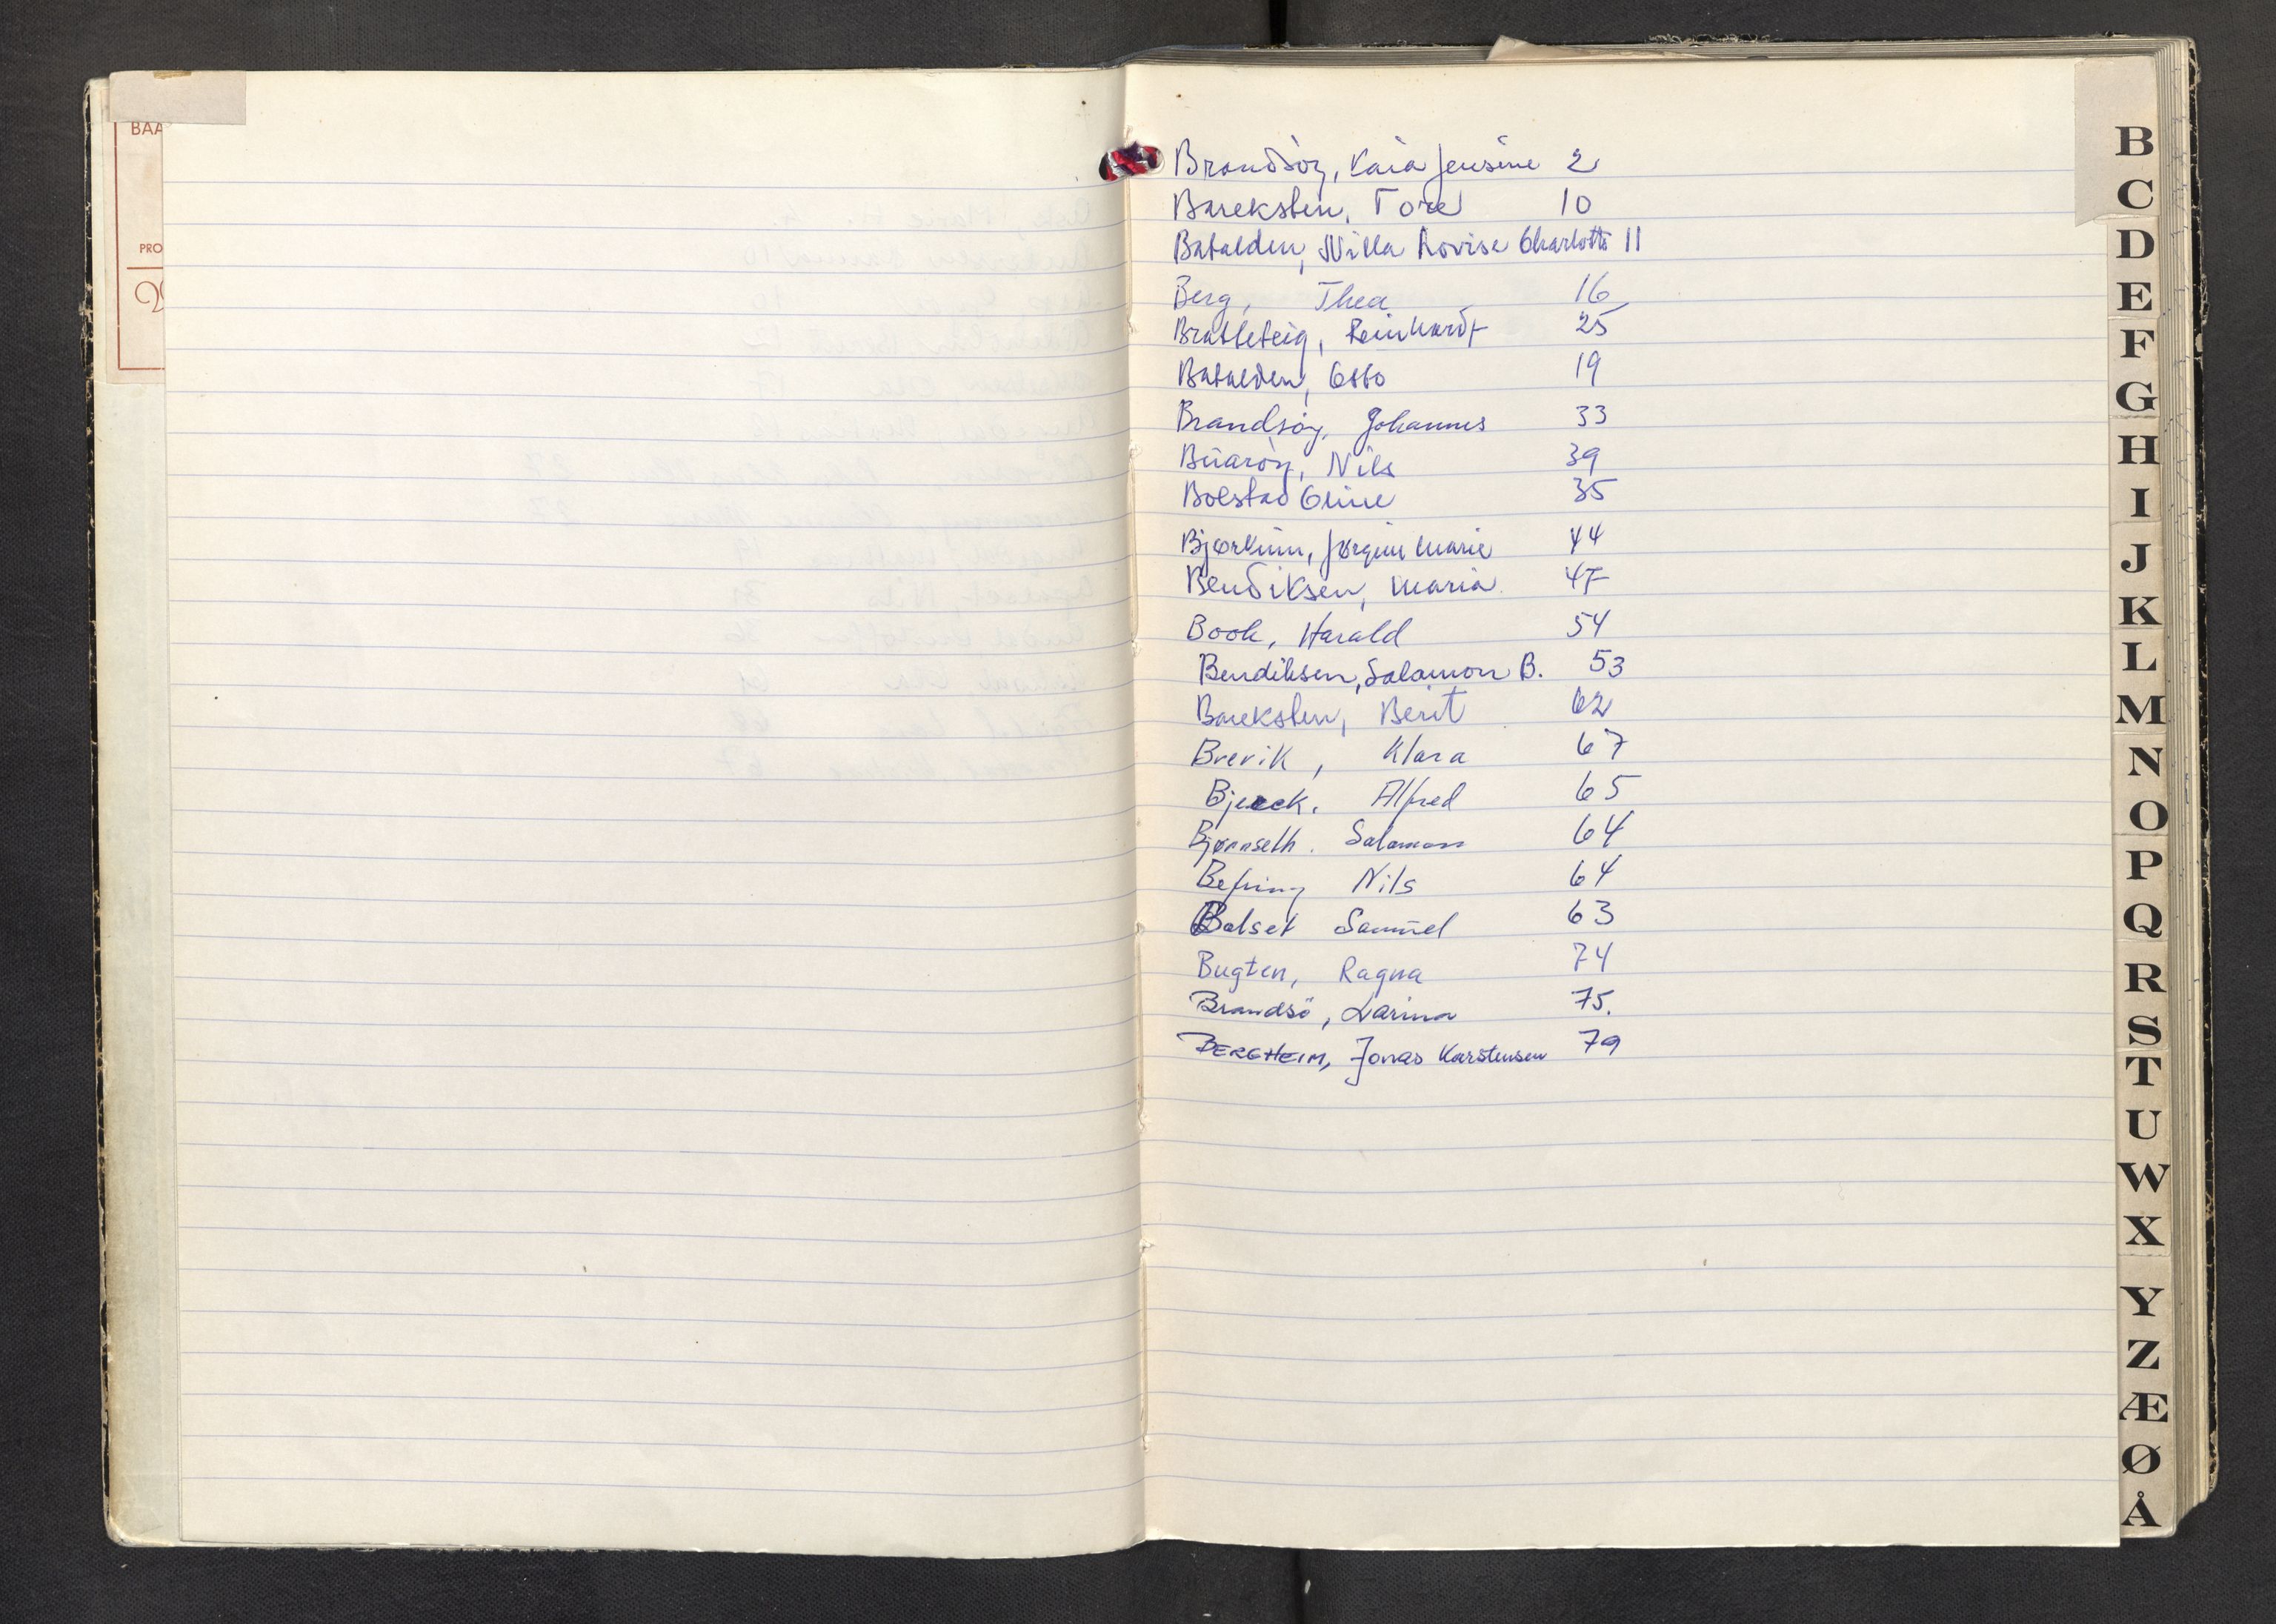 BAA
PRO
Brandsöy, Kaia Jensine 2
Bareksten, Tore 10
Batalden, Nilla Lovise Charlotte 11
Berg, Thea 16
Bratteteig, Reinhardt 25
Batalden, Otto 19
Brandsöy, Johannes 33
Búaröy, Nils 39
Bolstad Oline 35
Bjørkum, Jørgine Marie 44
Bendiksen, Maria 47
Book, Harald 54
Bendiksen, Salamon B. 53
Bareksten, Berit 62
Brevik, Klara 67
Alfred 65
Bjørnseth. Salamon 64
Befring Nils 64
Balset Samúel 63
Bugten, Ragna 74
Brandsö, Larina 75.
BERGHEIM, Jonas Karstensen 79
B
C
D
E
F
G
H
I
J
K
L
M
N
O
P
Q
R
S
T
U
W
X
Y
Z
Æ
Ø
Å